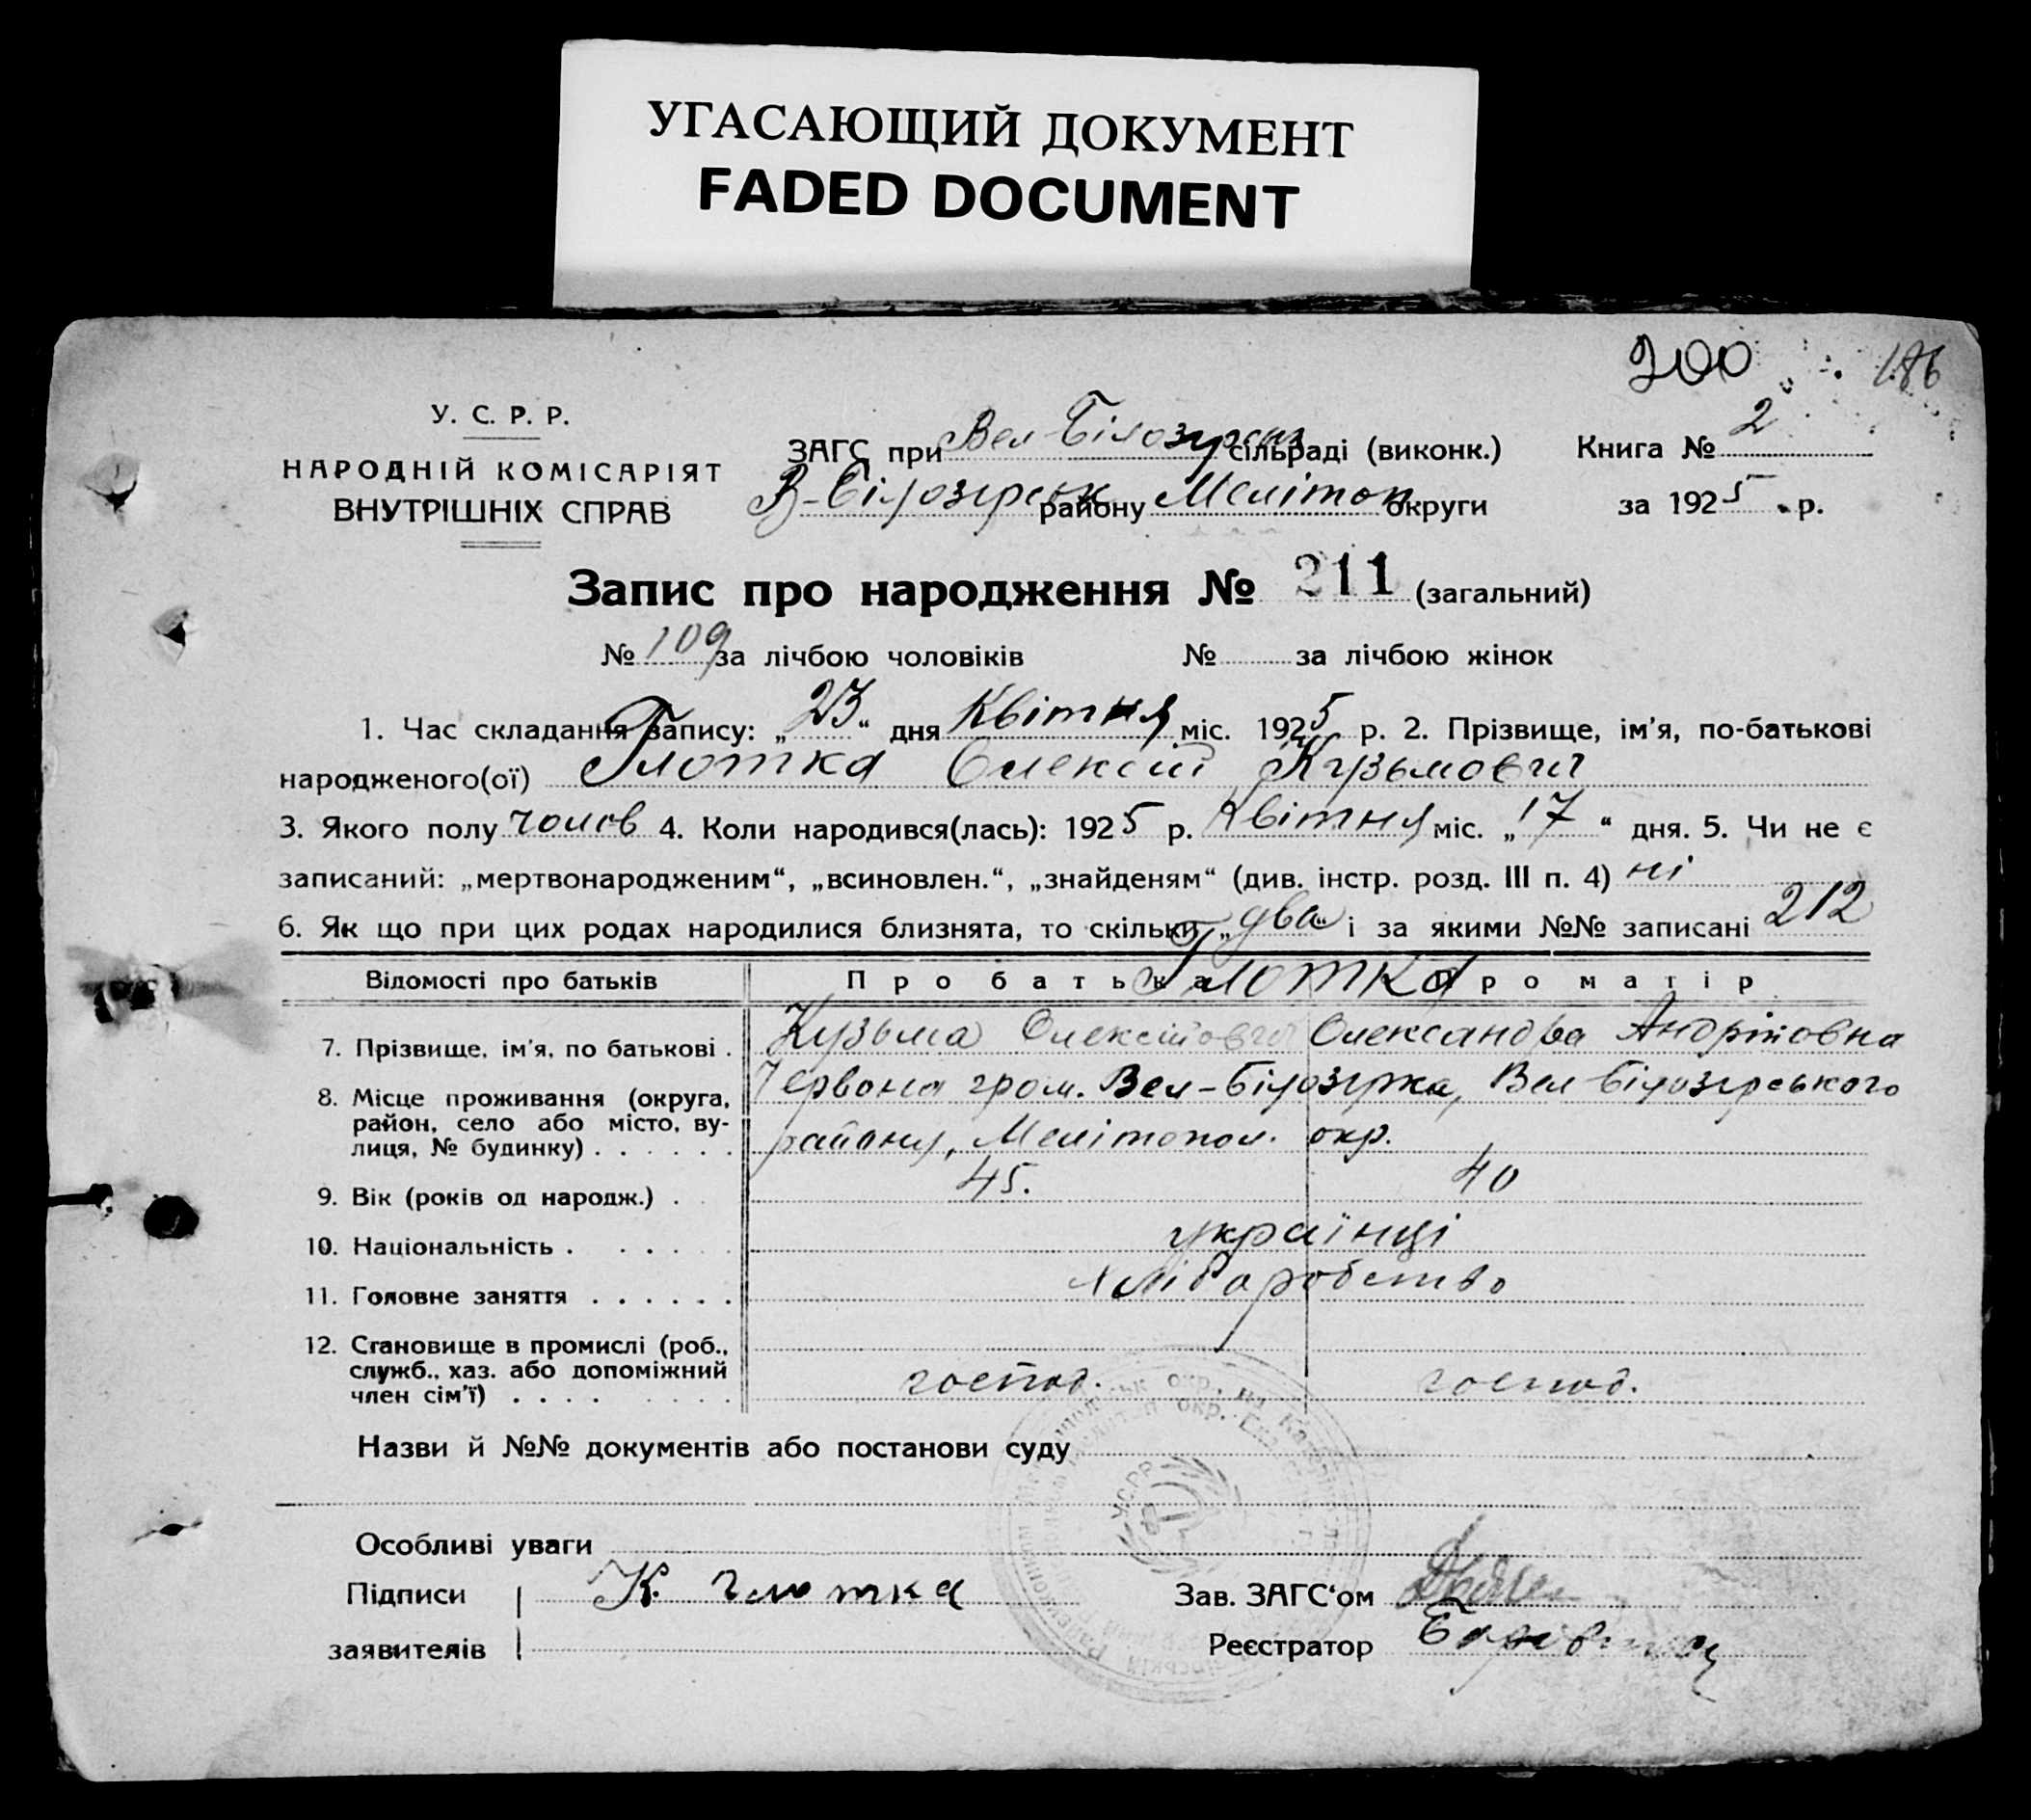 УГАСАЮЩИЙ ДОКУМЕНТ
FADED DOCUMENT
200 186
У. С. Р. Р.
НАРОДНІЙ КОМІСАРІЯТ
ВНУТРІШНІХ СПРАВ
ЗАГС при Вел-Білозерск сільраді (виконк.) Книга № 2
В-Білозерськ району Мелітоп округи за 1925 р.
Запис про народження № 211 (загальний)
№ 109 за лічбою чоловіків № за лічбою жінок
1. Час складання запису: „23“ дня Квітня міс. 1925 р. 2. Прізвище, ім'я, по-батькові
народженого(ої) Глотка Олексій Кузьмович
3. Якого полу чолов 4. Коли народився(лась): 1925 р. Квітня міс. „17“ дня. 5. Чи не є
записаний: „мертвонародженим“, „всиновлен.“, „знайденям“ (див. інстр. розд. III п. 4) ні
6. Як що при цих родах народилися близнята, то скільки „два“ і за якими №№ записані 212
Відомості про батьків Про батька Про матір
Глотка
7. Прізвище, ім'я, по батькові . Кузьма Олексійович Олександра Андріівовна
8. Місце проживання (округа, Червона гром. Вел-Білозірка, Вел Білозірського
район, село або місто, ву-
лиця, № будинку) . . . . . . району, Мелітопол. окр.
9. Вік (років од народж.) . 45. 40
10. Національність . . . . . українці
11. Головне заняття . . . . . . хліборобство
12. Становище в промислі (роб.,
служб., хаз. або допоміжний
член сім'ї) . . . . господ. господ.
Назви й №№ документів або постанови суду
УСРР
Особливі уваги
Підписи К. Глотка Зав. ЗАГС'ом
заявителів Реєстратор